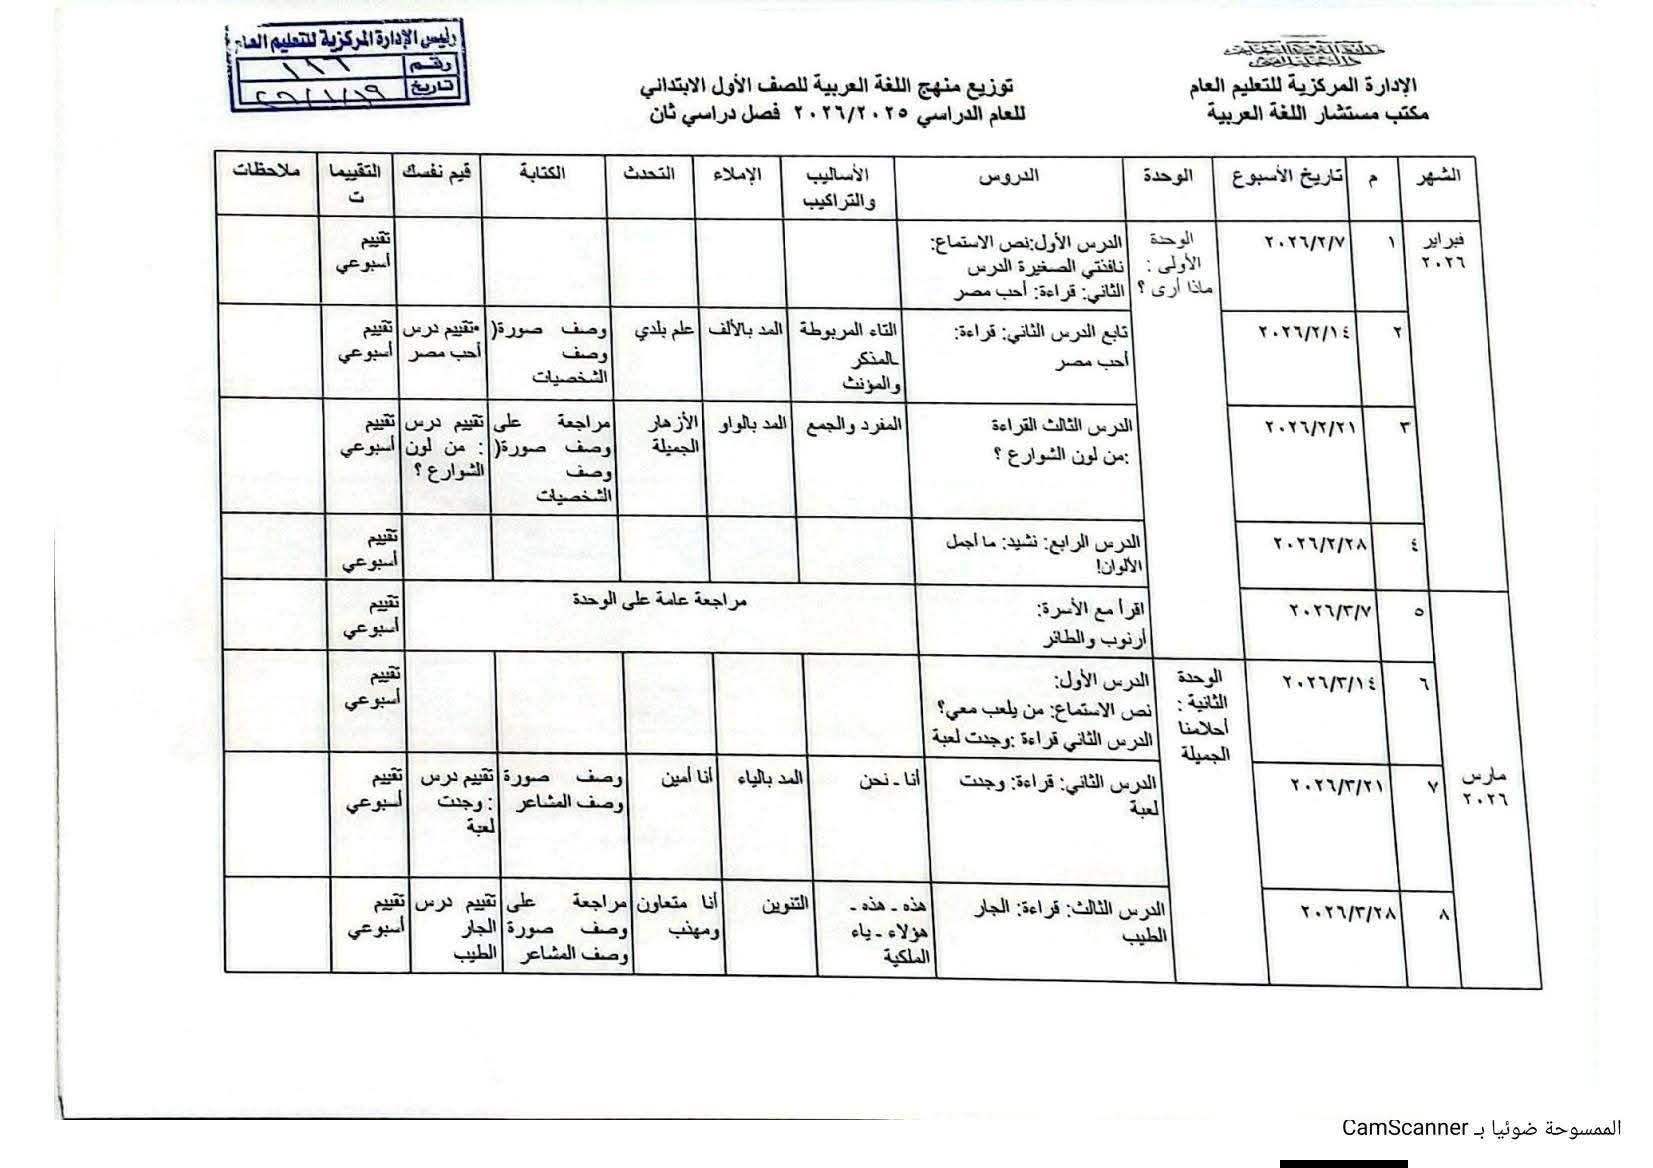 رئيس الإدارة المركزية للتعليم العام
رقم ١٦٦
تاريخ
الإدارة المركزية للتعليم العام
مكتب مستشار اللغة العربية
توزيع منهج اللغة العربية للصف الأول الابتدائي
للعام الدراسي ٢٠٢٦/٢٠٢٥ فصل دراسي ثان
الشهر م تاريخ الأسبوع الوحدة الدروس الأساليب والتراكيب الإملاء التحدث الكتابة قيم نفسك التقييما ت ملاحظات
فبراير
٢٠٢٦
١
٢٠٢٦/٢/٧
الوحدة
الأولى :
ماذا أرى ؟
الدرس الأول:نص الاستماع:
نافذتي الصغيرة الدرس
الثاني: قراءة: أحب مصر
تقييم
أسبوعي
٢
٢٠٢٦/٢/١٤
تابع الدرس الثاني: قراءة:
أحب مصر
التاء المربوطة
ـالمذكر
والمؤنث
المد بالألف
علم بلدي
وصف صورة(
وصف
الشخصيات
•تقييم درس
أحب مصر
تقييم
أسبوعي
٣
٢٠٢٦/٢/٢١
الدرس الثالث القراءة
:من لون الشوارع ؟
المفرد والجمع
المد بالواو
الأزهار
الجميلة
مراجعة على
وصف صورة(
وصف
الشخصيات
تقييم درس
: من لون
الشوارع ؟
تقييم
أسبوعي
٤
٢٠٢٦/٢/٢٨
الدرس الرابع: نشيد: ما أجمل
الألوان!
تقييم
أسبوعي
مارس
٢٠٢٦
٥
٢٠٢٦/٣/٧
اقرأ مع الأسرة:
أرنوب والطائر
مراجعة عامة على الوحدة
تقييم
أسبوعي
٦
٢٠٢٦/٣/١٤
الوحدة
الثانية :
أحلامنا
الجميلة
الدرس الأول:
نص الاستماع: من يلعب معي؟
الدرس الثاني قراءة :وجدت لعبة
تقييم
أسبوعي
٧
٢٠٢٦/٣/٢١
الدرس الثاني: قراءة: وجدت
لعبة
أنا ـ نحن
المد بالياء
أنا أمين
وصف صورة
وصف المشاعر
تقييم درس
: وجدت
لعبة
تقييم
أسبوعي
٨
٢٠٢٦/٣/٢٨
الدرس الثالث: قراءة: الجار
الطيب
هذه ـ هذه ـ
هؤلاء ـ ياء
الملكية
التنوين
أنا متعاون
ومهذب
مراجعة على
وصف صورة
وصف المشاعر
تقييم درس
الجار
الطيب
تقييم
أسبوعي
الممسوحة ضوئيا بـ CamScanner